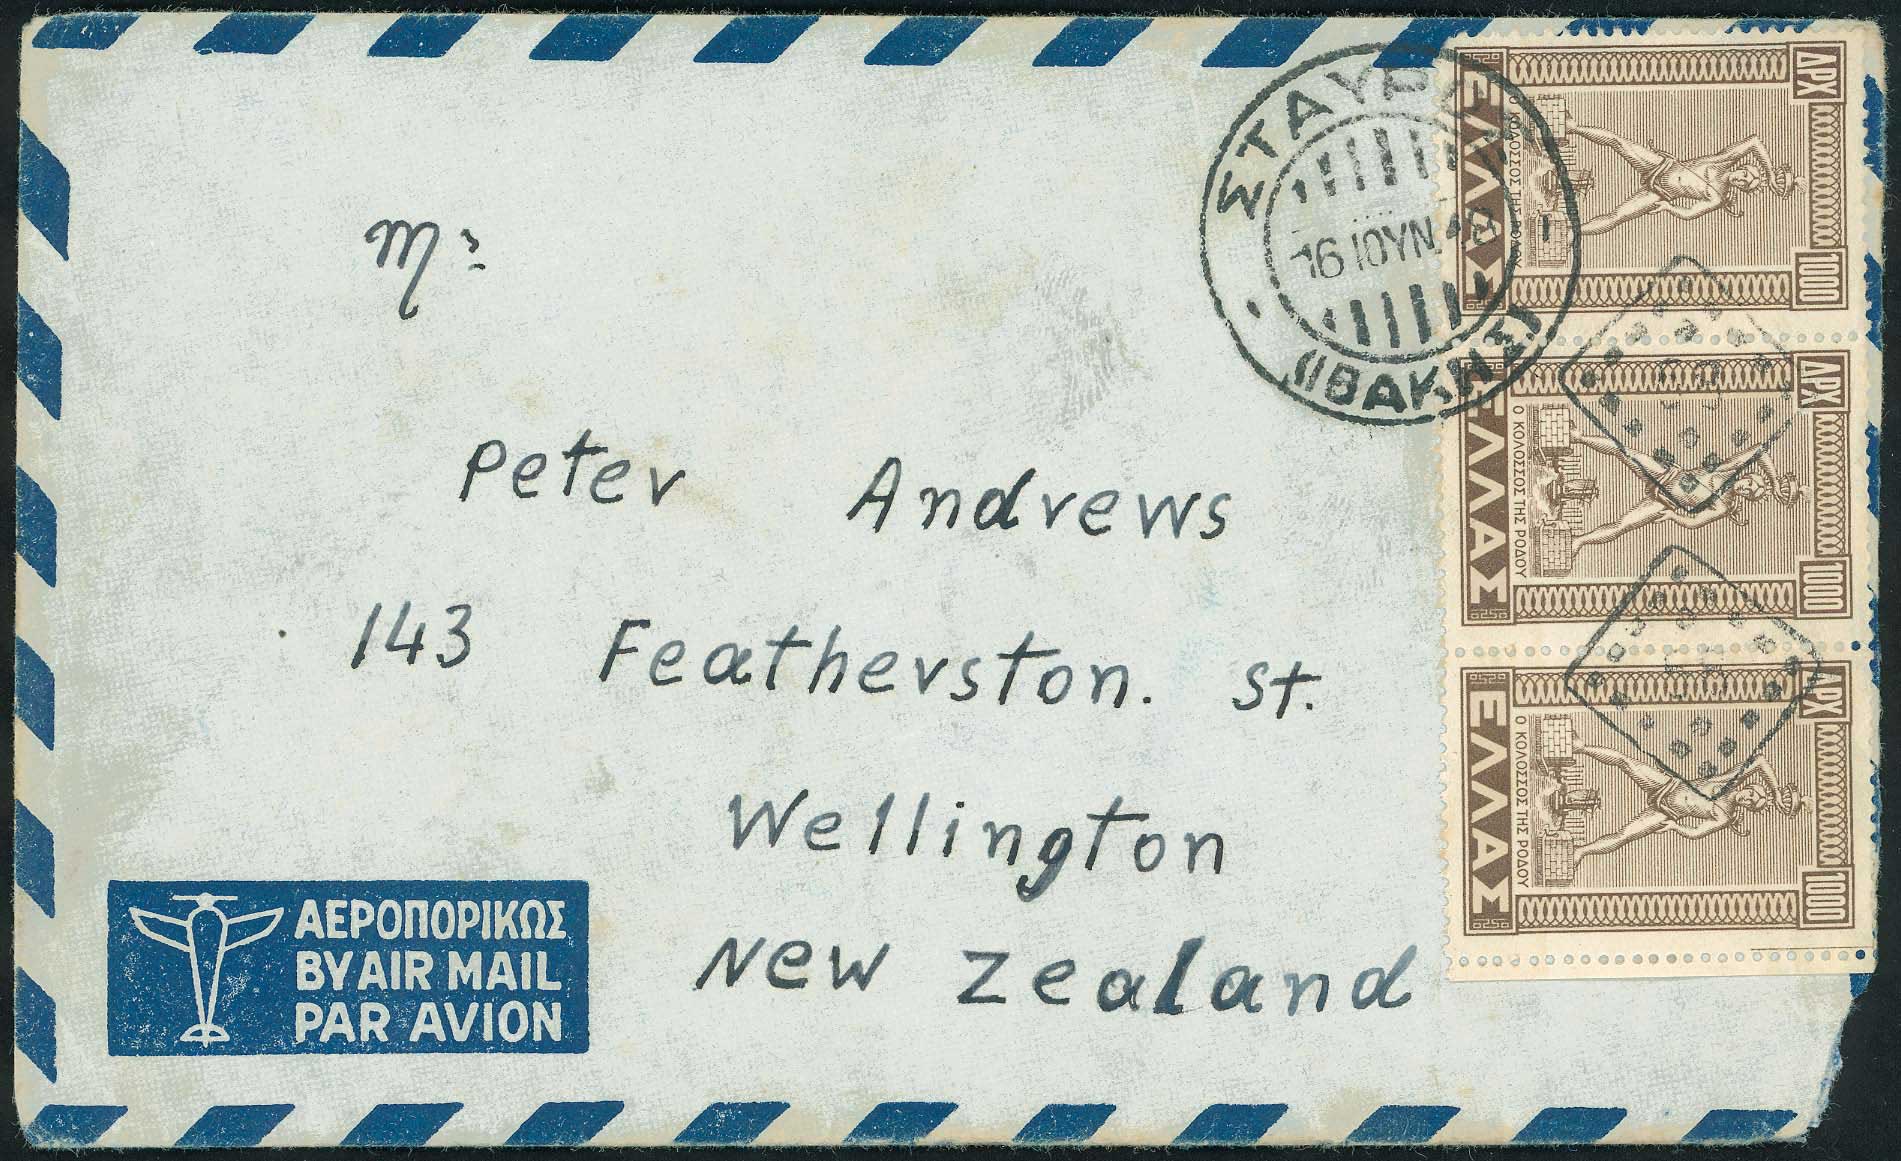 Mr:
Peter Andrews
143 Featherston. St.
Wellington
New Zealand
ΑΕΡΟΠΟΡΙΚΩΣ
BY AIR MAIL
PAR AVION
16 ΙΟΥΝ
(ΙΘΑΚΗΣ)
ΕΛΛΑΣ
Ο ΚΟΛΟΣΣΟΣ ΤΗΣ ΡΟΔΟΥ
ΔΡΧ
1000
ΕΛΛΑΣ
Ο ΚΟΛΟΣΣΟΣ ΤΗΣ ΡΟΔΟΥ
ΔΡΧ
1000
ΕΛΛΑΣ
Ο ΚΟΛΟΣΣΟΣ ΤΗΣ ΡΟΔΟΥ
ΔΡΧ
1000